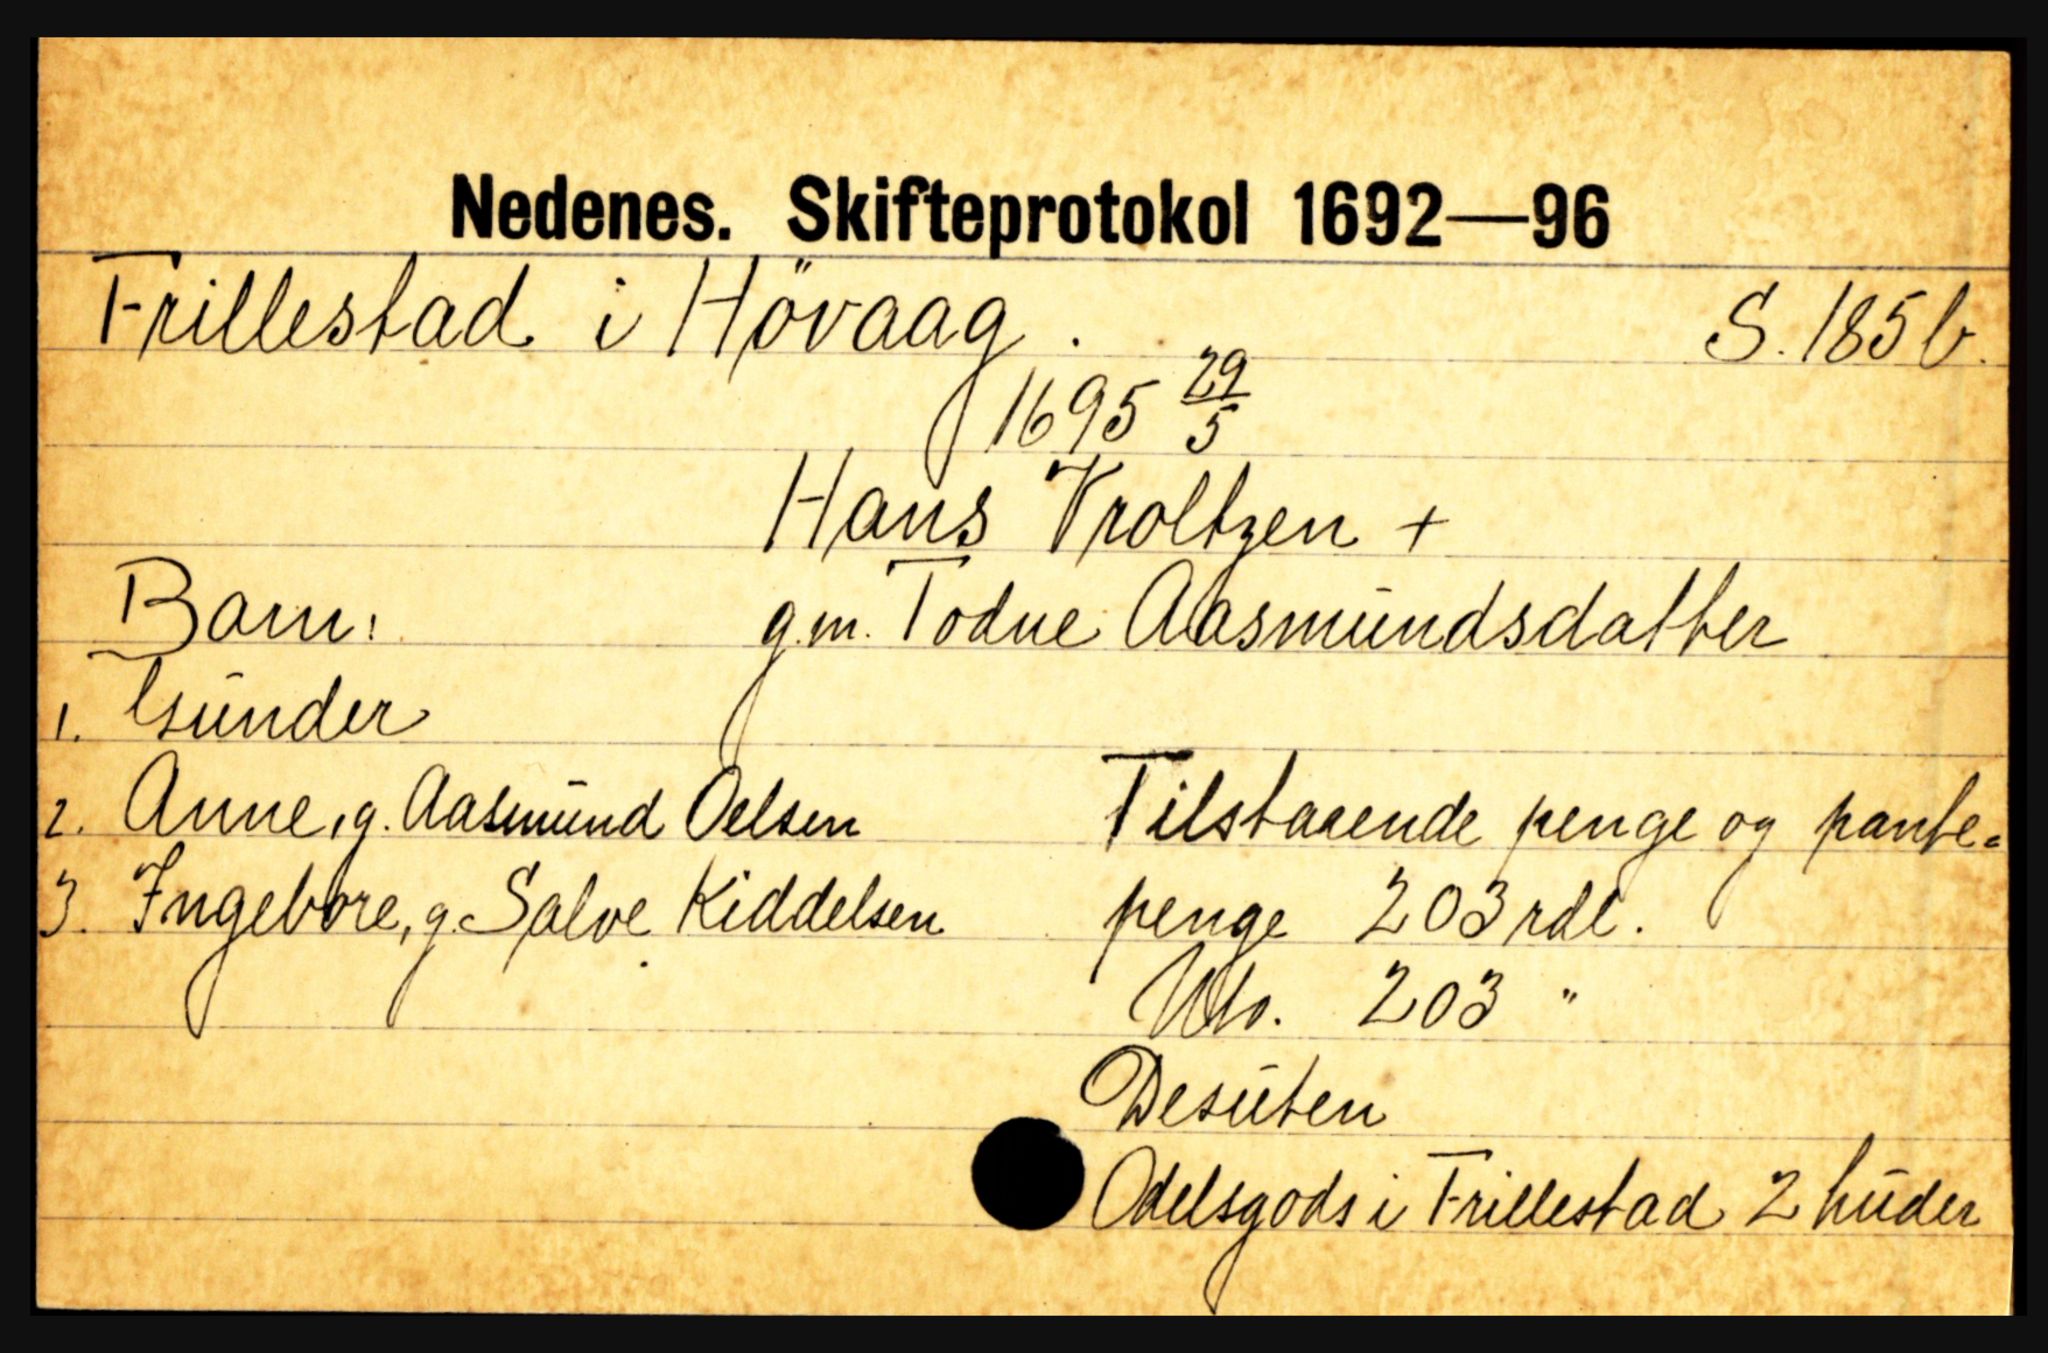 Nedenes. Skifteprotokol 1692—96
Frillestad i Hövaag. S. 185 b.
1695 29/5
Hans Vroltzen +
Barn: g.m. Todne Aasmundsdatter
1. Gunder
2. Anne, g. Aasmund Oelsen
3. Ingebore, g. Salve Kiddelsen
Tilstaaende penge og pante=
penge 203 rdl.
Utlo. 203 "
Desuten
Odelsgods i Frillestad 2 huder